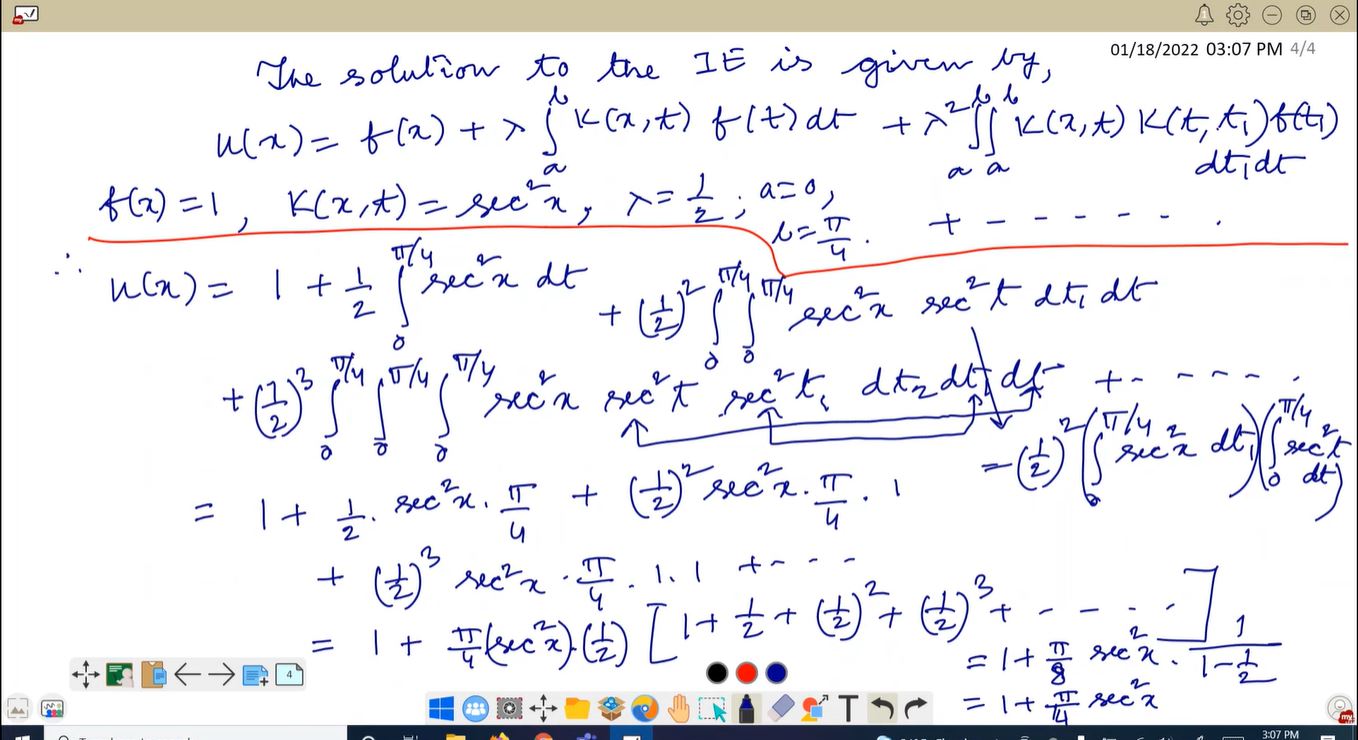 01/18/2022 03:07 PM 4/4
The solution to the IE is given by,
u(x) = f(x) + λ ∫_a^b K(x,t) f(t) dt + λ² ∫_a^b ∫_a^b K(x,t) K(t,t₁) f(t₁) dt₁ dt
f(x) = 1, K(x,t) = sec²x, λ = 1/2 ; a = 0, b = π/4. + - - - - - - .
∴ u(x) = 1 + 1/2 ∫_0^{π/4} sec²x dt + (1/2)² ∫_0^{π/4} ∫_0^{π/4} sec²x sec²t dt₁ dt
+ (1/2)³ ∫_0^{π/4} ∫_0^{π/4} ∫_0^{π/4} sec²x sec²t sec²t₁ dt₂ dt₁ dt + - - - - .
= (1/2)² (∫_0^{π/4} sec²x dt₁) (∫_0^{π/4} sec²t dt)
= 1 + 1/2 . sec²x . π/4 + (1/2)² sec²x . π/4 . 1
+ (1/2)³ sec²x . π/4 . 1 . 1 + - - -
= 1 + π/4 (sec²x) . (1/2) [1 + 1/2 + (1/2)² + (1/2)³ + - - - - ]
= 1 + π/8 sec²x . 1/(1 - 1/2)
= 1 + π/4 sec²x
4
T
3:07 PM